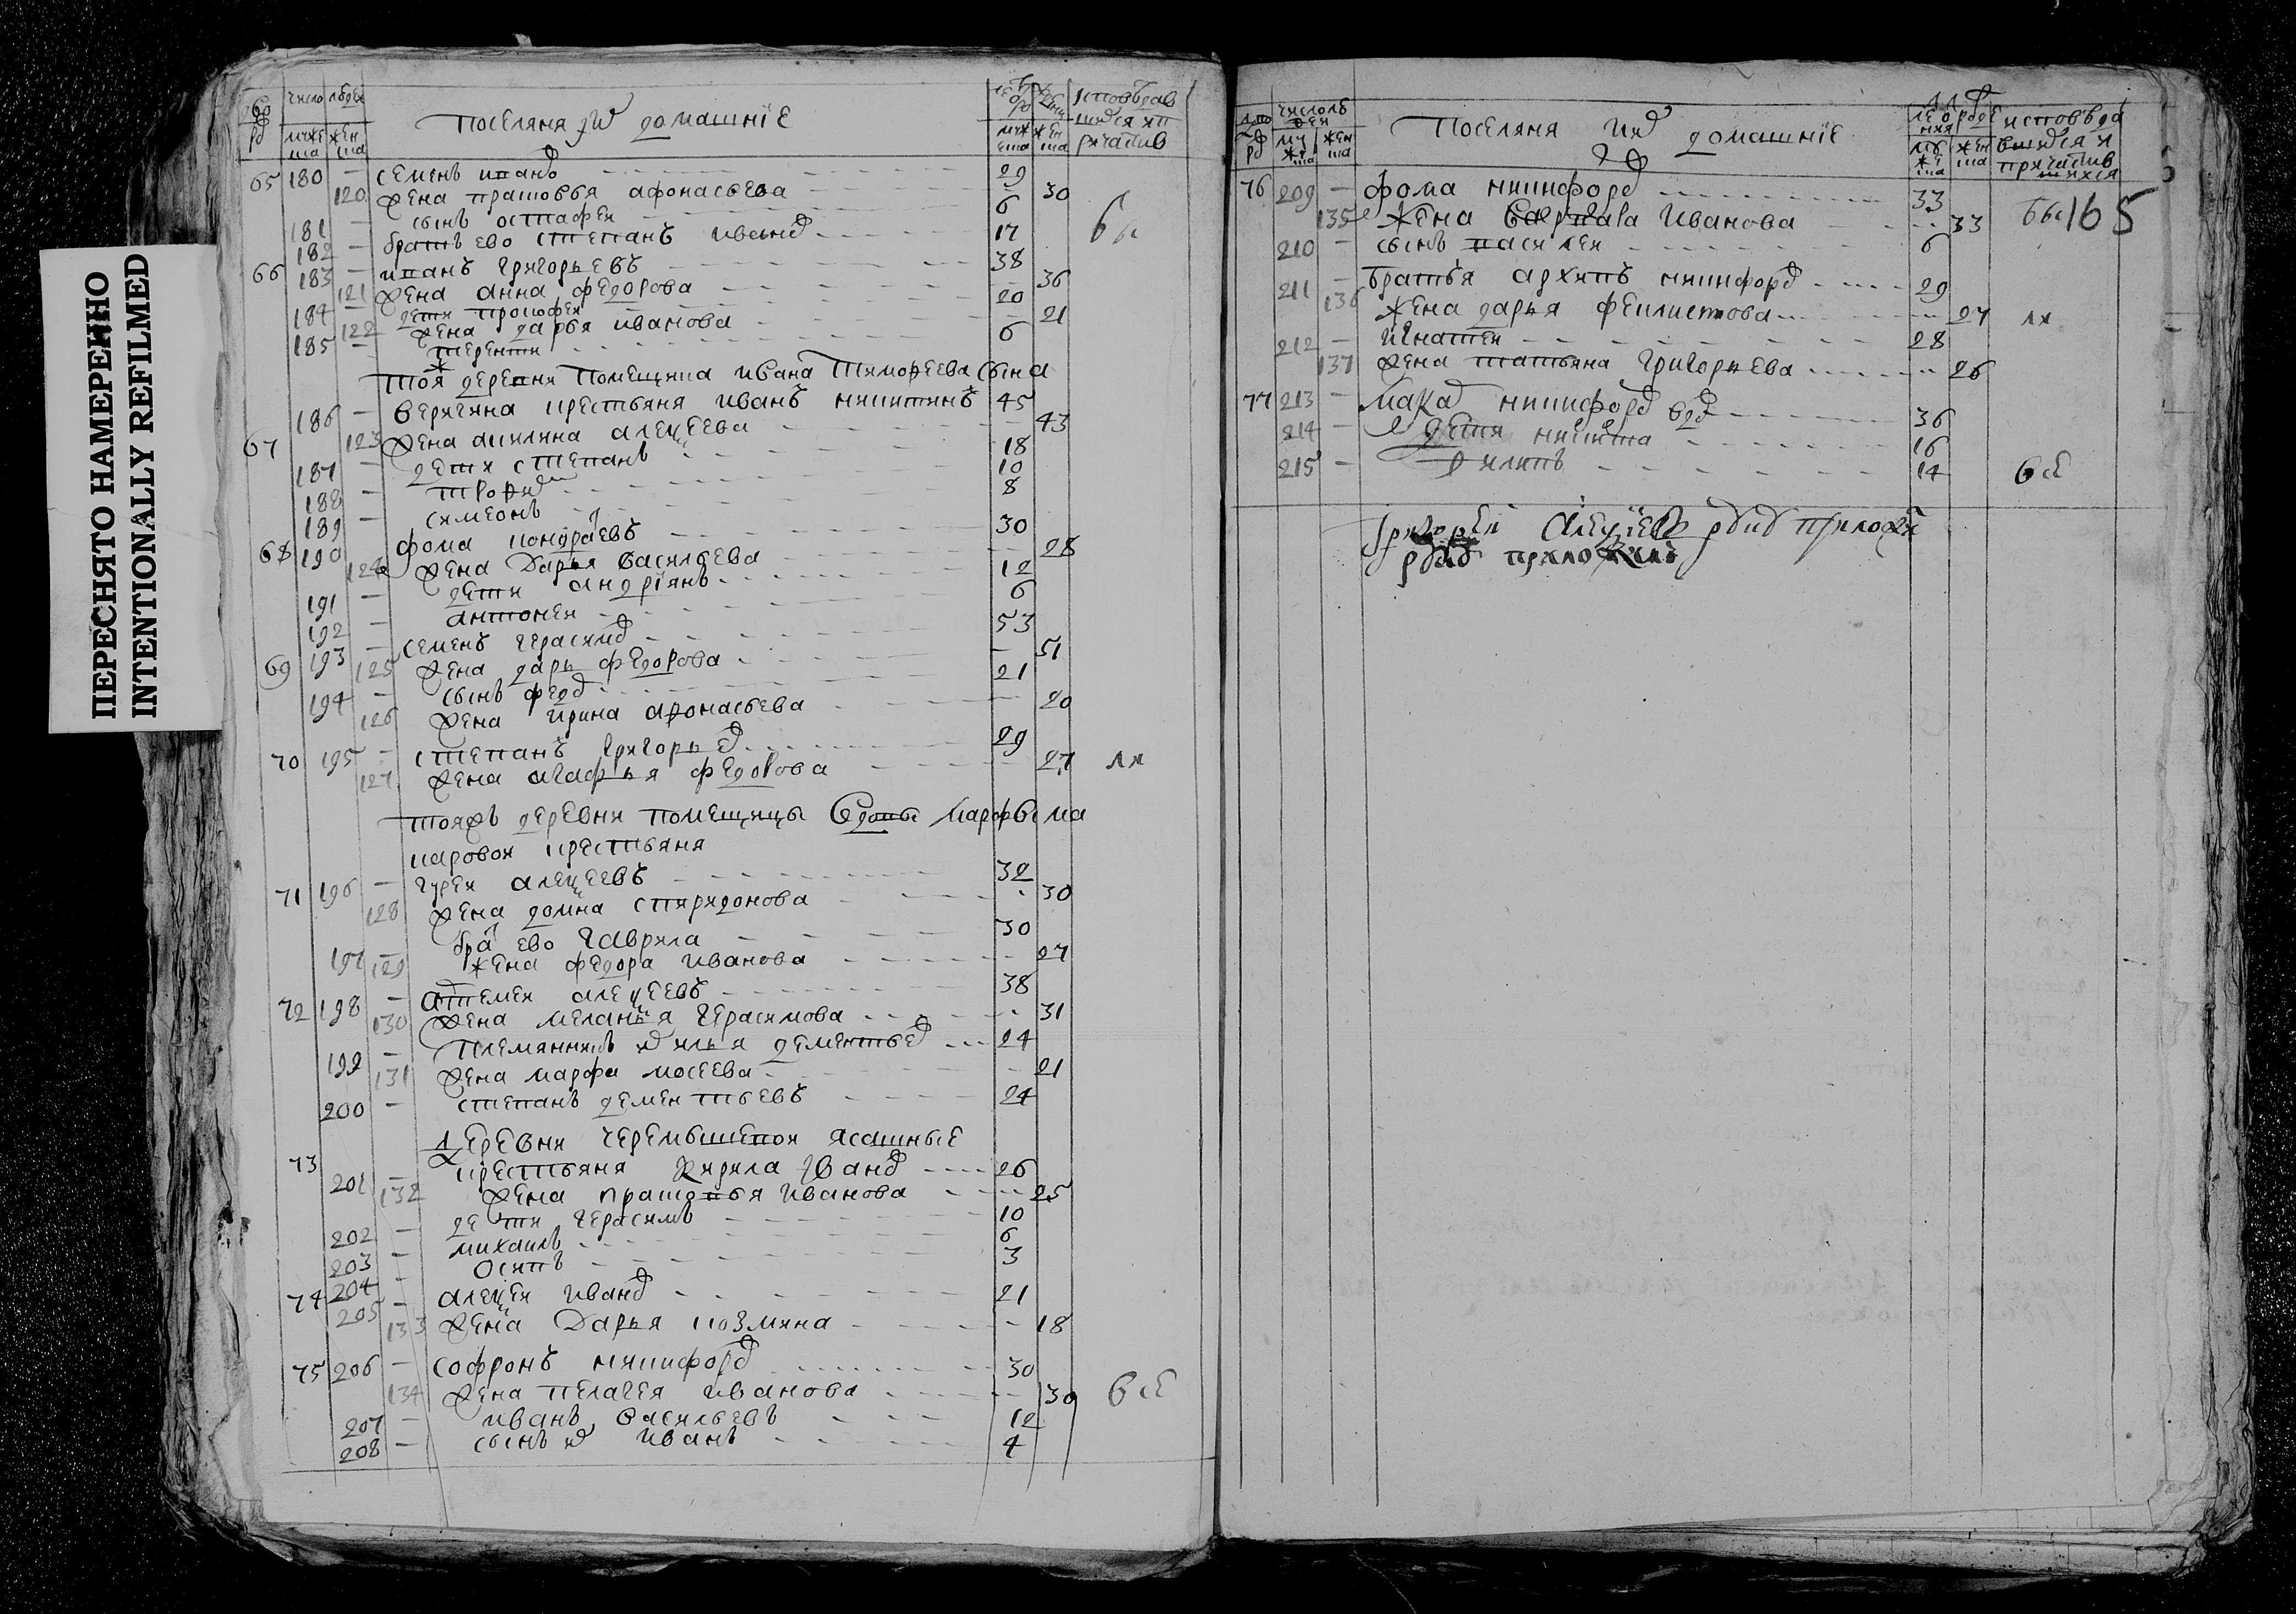 ПЕРЕСНЯТО НАМЕРЕННО
INTENTIONALLY REFILMED
число людей
муже ска жен ска
поселяня домашнiе
муж еска жен ска
65 180 — семенъ иванов 29
120 жена прасковья афонасьева — 30
181 — сынъ остафеи 6
182 — братъ ево степанъ иванов 17
66 183 — иванъ григорьевъ 38
121 жена анна федорова — 36
184 — дети прокофеи 20
122 жена дарья иванова — 21
185 — терентеи 6
тоя ж деревня помещика ивана тимофеева сына
186 — верягина крестьяня иванъ никитинъ 45
67 123 жена акилина алексеева — 43
187 — дети степанъ 18
188 — трофим 10
189 — симеонъ 8
68 190 фома кондраевъ 30
124 жена дарья васильева — 28
191 — дети андрiянъ 12
192 — антонеи 6
69 193 — семенъ герасимов 53
125 жена дарья федорова — 51
194 — сынъ федор 21
126 жена ирина афонасьева — 20
70 195 — степанъ григорьев 29
127 жена агафья федорова — 27
тояжъ деревни помещицы вдовы марфы ма
каровои крестьяня
71 196 — гуреи алексеевъ 32
128 жена домна спиридонова 30
197 — бра ево гаврила 30
129 жена федора иванова — 27
72 198 — артемеи алексеевъ 38
130 жена меланья герасимова 31
199 — племянникъ их илья дементьев 24
131 жена марфа мосеева — 21
200 — степанъ дементьевъ 24
деревни черемышевои ясашные
73 201 — крестьяня кирила иванов 26
132 жена прасковья иванова 25
202 — дети герасимъ 10
203 — михаилъ 6
204 — осипъ 3
74 205 — алексеи иванов 21
133 жена дарья козмина — 18
75 206 — софронъ никифоров 30
134 жена пелагея иванова — 30 все
207 — иванъ васильевъ 12
208 — сынъ их иванъ 4
поселяня их домашнiе
муж ска жен ска
165
76 209 — фома никифоров 33
135 жена иванова 33
210 — сынъ василеи 6
211 — братья архипъ никифоров 29
136 жена дарья феилистова 27
212 — игнатеи 28
137 жена татьяна григорьева 26
77 213 — макар никифоров вдов 36
214 — дети никита 16
215 — филипъ 14 все
григореи алексеевъ руку приложи
руку приложилъ